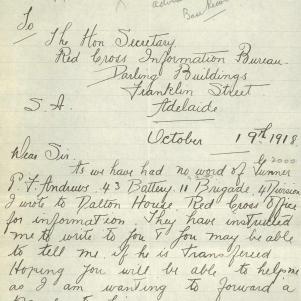 To
The Hon Secretary
Red Cross Information Bureau
Darling Buildings
Franklin Street
S.A. Adelaide
October 19th 1918
Dear Sir
As we have had no word of Gunner
P. F. Andrews. 43 Battery. 11 Brigade. 4 Division
I wrote to Dalton House. Red Cross Office
for information. They have instructed
me to write to you & you may be able
to tell me if he is Transfered
Hoping you will be able to help me
as I am wanting to forward a